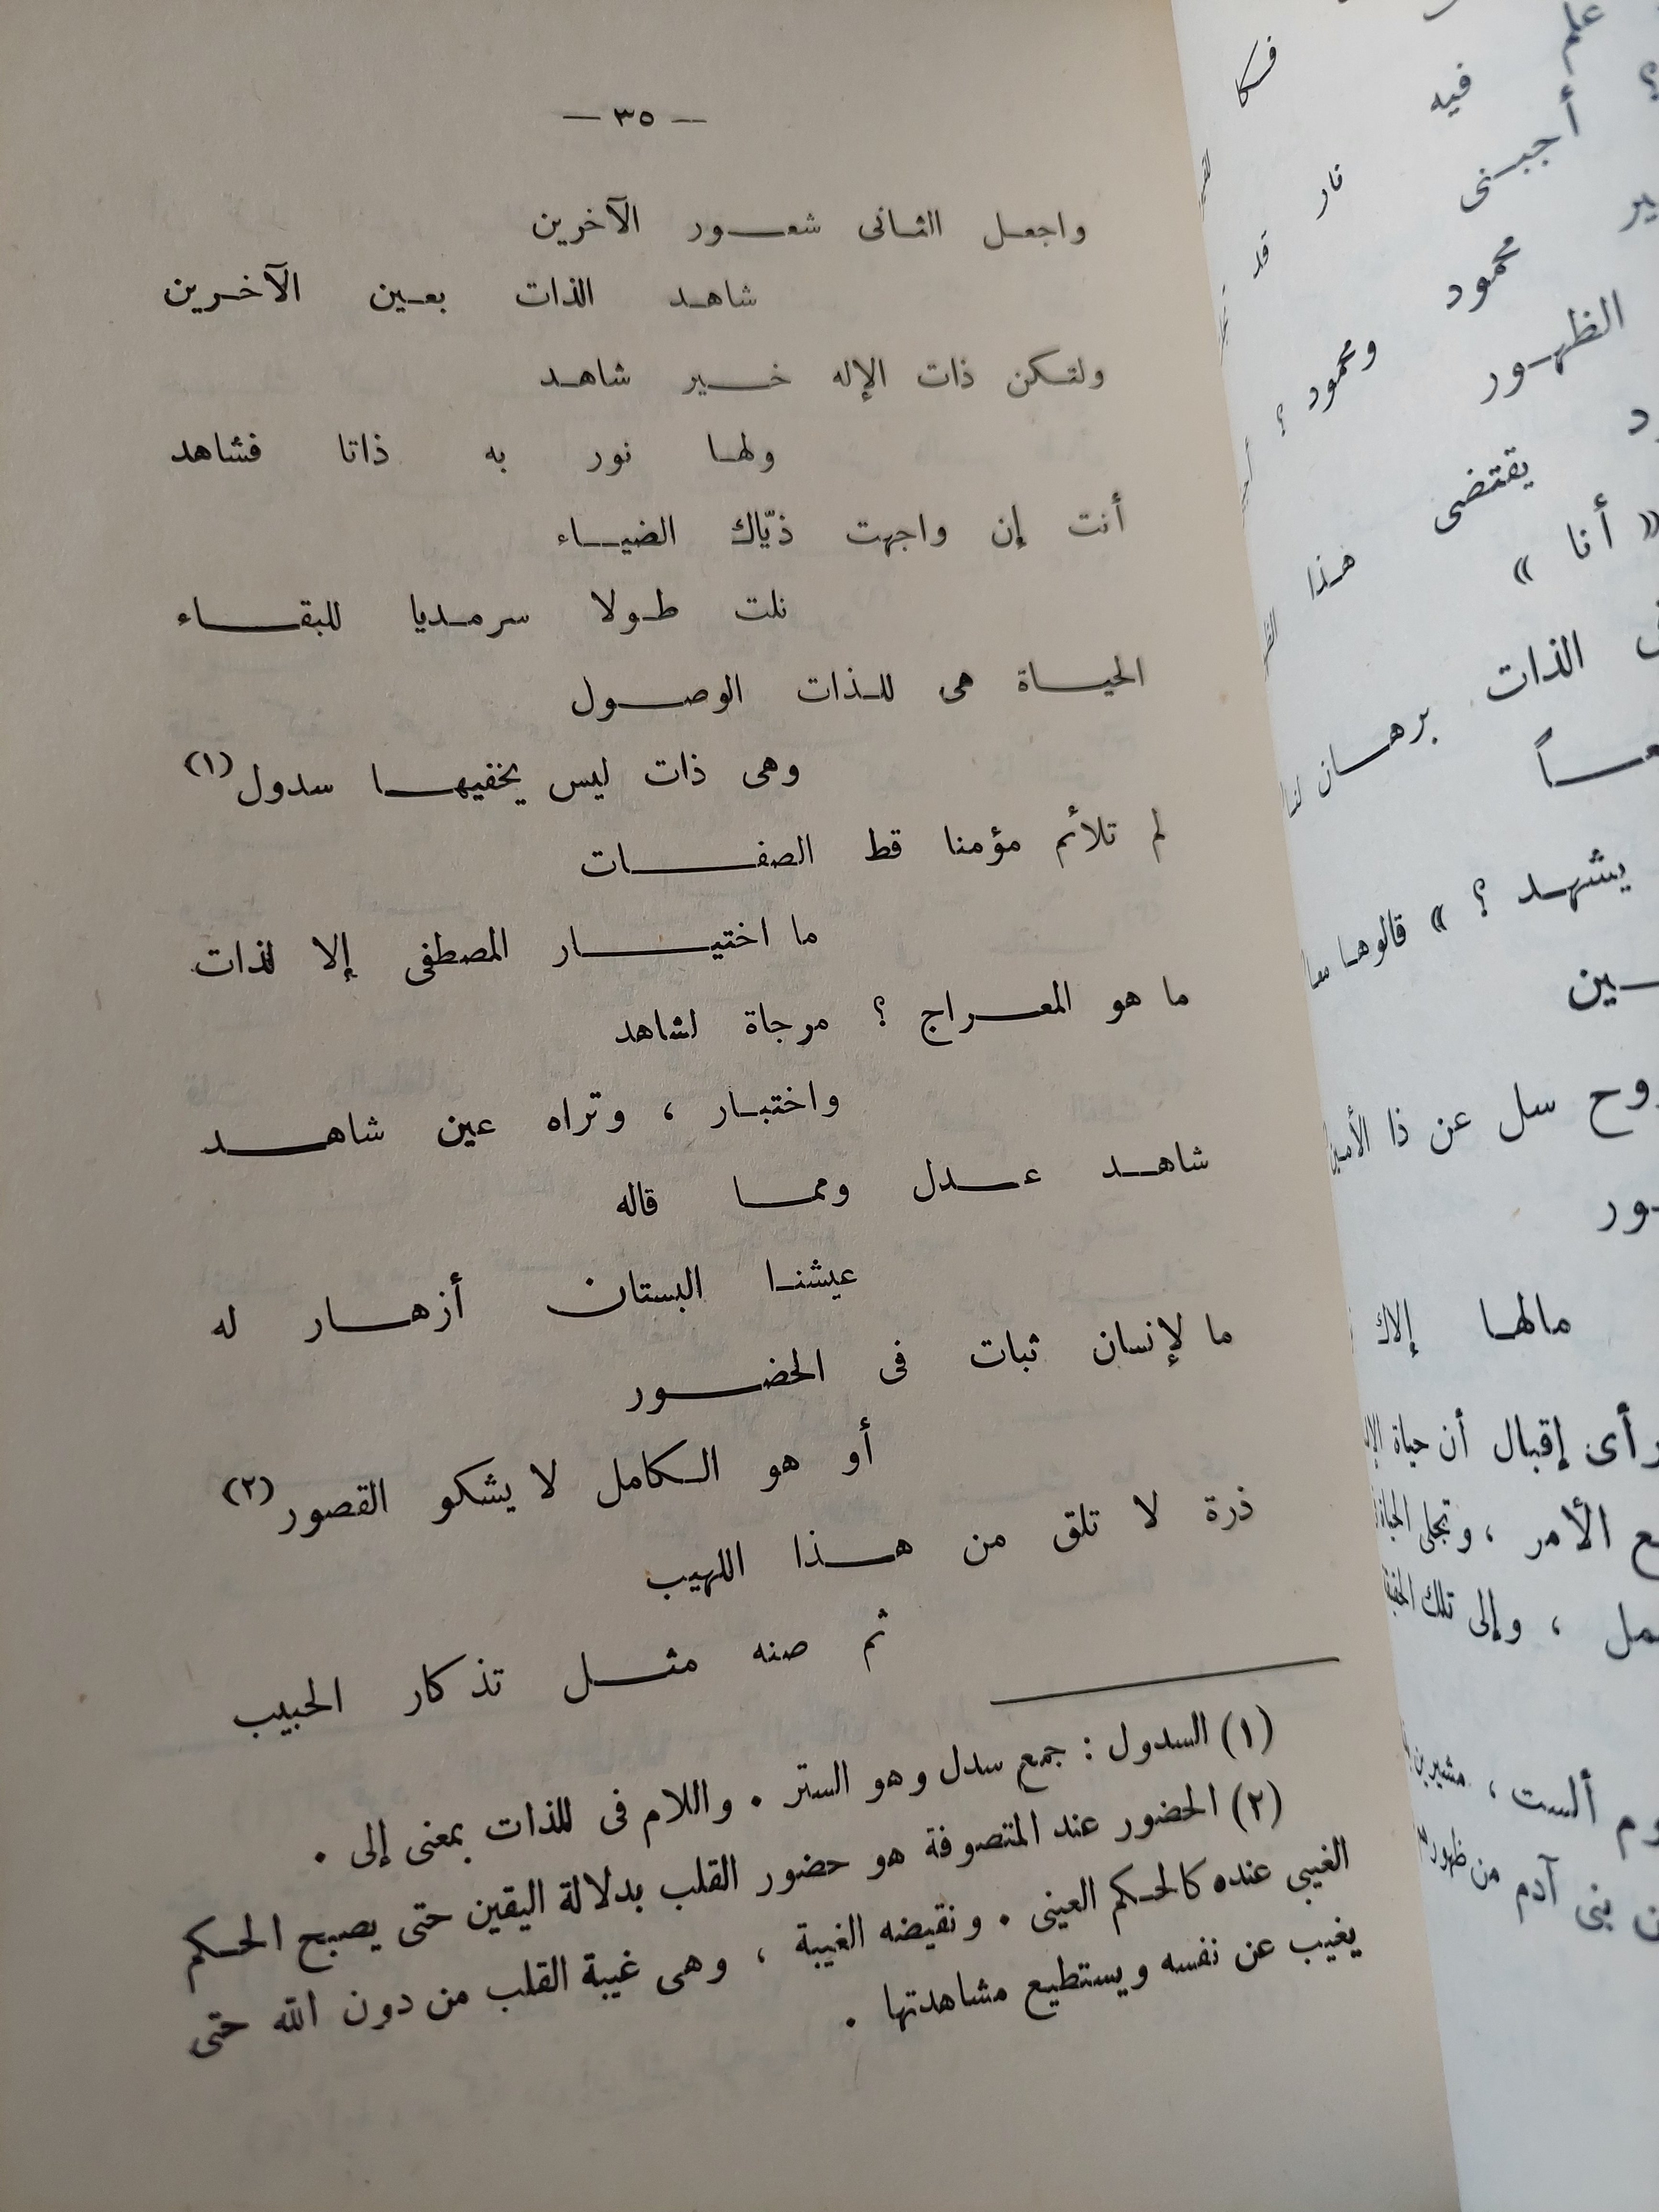 — ٣٥ —
واجعل الثانى شعور الآخرين
شاهد الذات بعين الآخرين
ولتكن ذات الإله خير شاهد
ولها نور به ذاتا فشاهد
أنت إن واجهت ذيّاك الضياء
نلت طولا سرمديا للبقاء
الحياة هى للذات الوصول
وهى ذات ليس يخفيها سدول (١)
لم تلائم مؤمنا قط الصفات
ما اختيار المصطفى إلا لذات
ما هو المعراج ؟ مرجاة لشاهد
واختبار ، وتراه عين شاهد
شاهد عدل ومما قاله
عيشنا البستان أزهار له
ما لإنسان ثبات فى الحضور
أو هو الكامل لا يشكو القصور (٢)
ذرة لا تلق من هذا اللهيب
ثم صنه مثل تذكار الحبيب
(١) السدول : جمع سدل وهو الستر . واللام فى للذات بمعنى إلى .
(٢) الحضور عند المتصوفة هو حضور القلب بدلالة اليقين حتى يصبح الحكم
الغيبى عنده كالحكم العينى . ونقيضه الغيبة ، وهى غيبة القلب من دون الله حتى
يغيب عن نفسه ويستطيع مشاهدتها .
علم
فيه
؟ أجبنى
نار
محمود
ومحمود ؟
الظهور
يقتضى هذا
« أنا »
الذات برهان لنا
يشهد ؟ » قالوها معا
سل عن ذا الأمين
مالها إلاك
رأى إقبال أن حياة
الأمر ، وتجلى
، وإلى تلك
ألست ، مشيرين
بنى آدم من ظهور